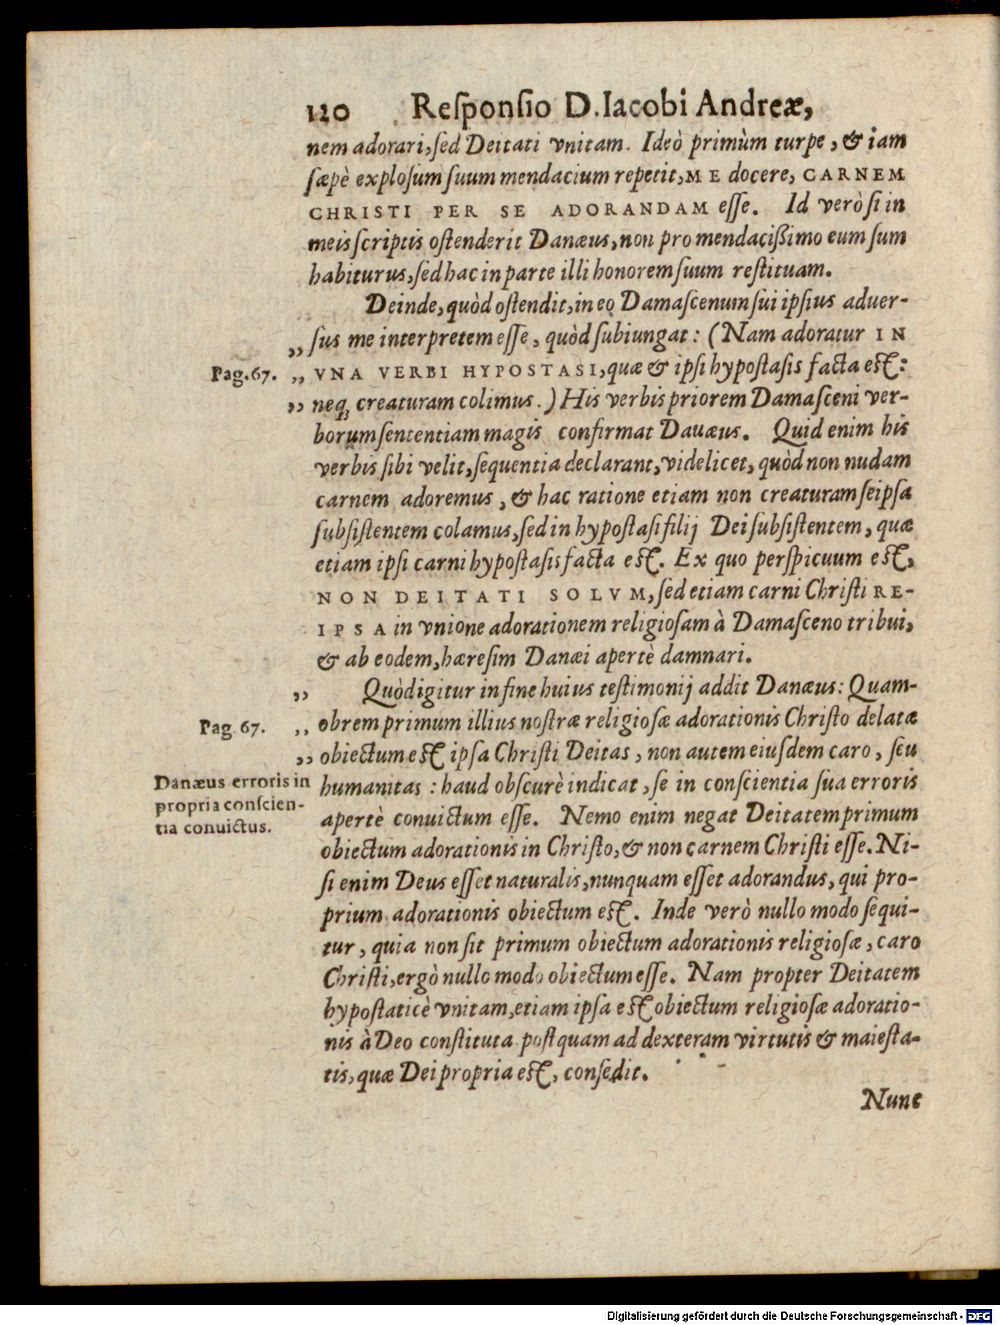 120 Reſponſio D. Iacobi Andreæ,
nem adorari, ſed Deitati vnitam. Ideò primùm turpe, & iam
ſæpè exploſum ſuum mendacium repetit, ME docere, CARNEM
CHRISTI PER SE ADORANDAM eſſe. Id verò ſi in
meis ſcriptis oſtenderit Danæus, non pro mendacißimo eum ſum
habiturus, ſed hac in parte illi honorem ſuum reſtituam.
Deinde, quòd oſtendit, in eo Damaſcenum ſui ipſius aduer-
„ ſus me interpretem eſſe, quòd ſubiungat: (Nam adoratur IN
Pag. 67. „ VNA VERBI HYPOSTASI, quæ & ipſi hypoſtaſis facta eſt:
„ neq; creaturam colimus.) His verbis priorem Damaſceni ver-
borum ſententiam magis confirmat Dauæus. Quid enim his
verbis ſibi velit, ſequentia declarant, videlicet, quòd non nudam
carnem adoremus, & hac ratione etiam non creaturam ſeipſa
ſubſiſtentem colamus, ſed in hypoſtaſi filij Dei ſubſiſtentem, quæ
etiam ipſi carni hypoſtaſis facta eſt. Ex quo perſpicuum eſt,
NON DEITATI SOLVM, ſed etiam carni Chriſti RE-
IPSA in vnione adorationem religioſam à Damaſceno tribui,
& ab eodem, hæreſim Danæi apertè damnari.
„ Quòd igitur in fine huius teſtimonij addit Danæus: Quam-
Pag. 67. „ obrem primum illius noſtræ religioſæ adorationis Chriſto delatæ
„ obiectum eſt ipſa Chriſti Deitas, non autem eiuſdem caro, ſeu
Danæus erroris in
propria conſcien-
tia conuictus.
humanitas: haud obſcurè indicat, ſe in conſcientia ſua erroris
apertè conuictum eſſe. Nemo enim negat Deitatem primum
obiectum adorationis in Chriſto, & non carnem Chriſti eſſe. Ni-
ſi enim Deus eſſet naturalis, nunquam eſſet adorandus, qui pro-
prium adorationis obiectum eſt. Inde verò nullo modo ſequi-
tur, quia non ſit primum obiectum adorationis religioſæ, caro
Chriſti, ergò nullo modo obiectum eſſe. Nam propter Deitatem
hypoſtaticè vnitam, etiam ipſa eſt obiectum religioſæ adoratio-
nis à Deo conſtituta poſtquam ad dexteram virtutis & maieſta-
tis, quæ Dei propria eſt, conſedit.
Nunc
Digitalisierung gefördert durch die Deutsche Forschungsgemeinschaft - DFG